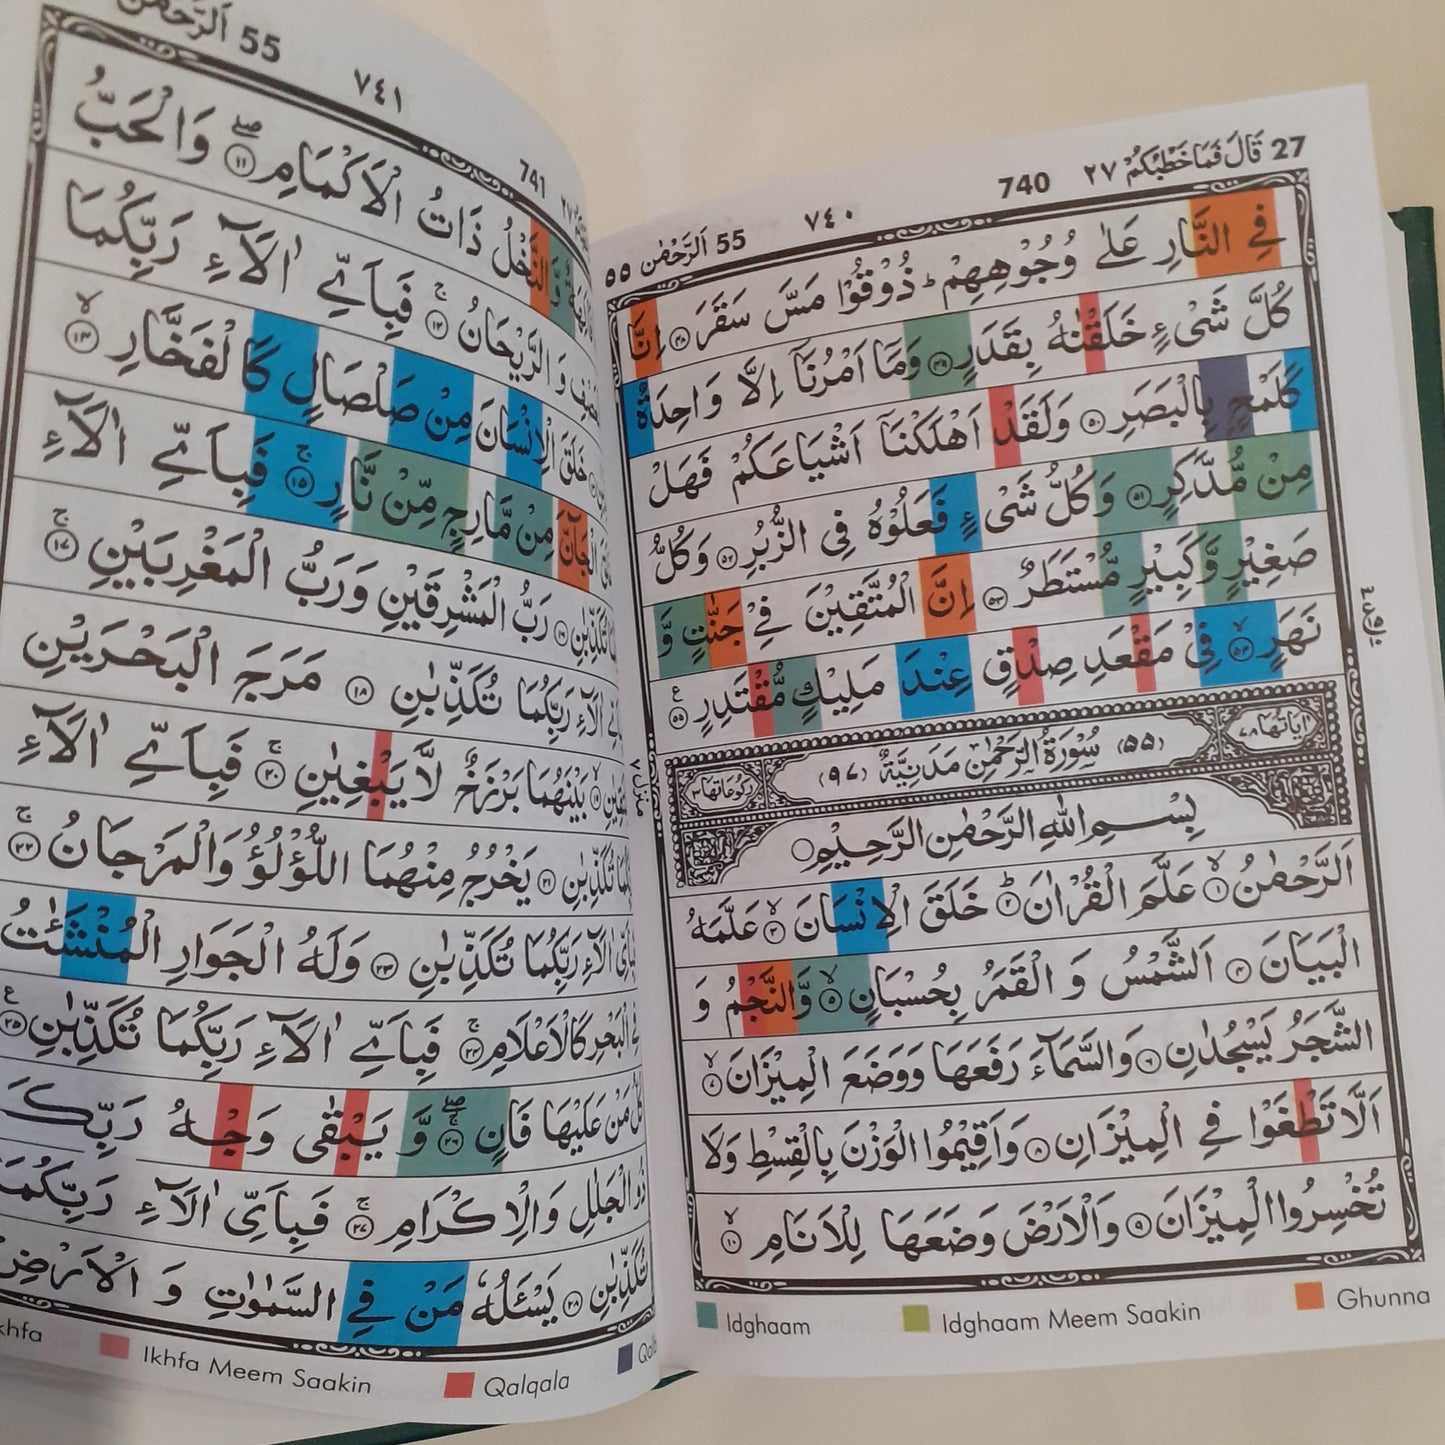 27 قَالَ فَمَا خَطْبُكُمْ ٢٧
740
٧٤٠
55 اَلرَّحْمٰن ٥٥
فِي النَّارِ عَلٰى وُجُوْهِهِمْ ؕ ذُوْقُوْا مَسَّ سَقَرَ ۝٤٨ اِنَّا
كُلَّ شَيْءٍ خَلَقْنٰهُ بِقَدَرٍ ۝٤٩ وَمَاۤ اَمْرُنَاۤ اِلَّا وَاحِدَةٌ
كَلَمْحٍۭ بِالْبَصَرِ ۝٥٠ وَلَقَدْ اَهْلَكْنَاۤ اَشْيَاعَكُمْ فَهَلْ
مِنْ مُّدَّكِرٍ ۝٥١ وَكُلُّ شَيْءٍ فَعَلُوْهُ فِي الزُّبُرِ ۝٥٢ وَكُلُّ
صَغِيْرٍ وَّكَبِيْرٍ مُّسْتَطَرٌ ۝٥٣ اِنَّ الْمُتَّقِيْنَ فِيْ جَنّٰتٍ وَّ
نَهَرٍ ۝٥٤ۙ فِيْ مَقْعَدِ صِدْقٍ عِنْدَ مَلِيْكٍ مُّقْتَدِرٍ ۝٥٥ ع
اٰيَاتُهَا ٧٨ (٥٥) سُوْرَةُ الرَّحْمٰنِ مَدَنِيَّةٌ (٩٧) رُكُوْعَاتُهَا ٣
بِسْمِ اللهِ الرَّحْمٰنِ الرَّحِيْمِ
اَلرَّحْمٰنُ ۝١ۙ عَلَّمَ الْقُرْاٰنَ ۝٢ؕ خَلَقَ الْاِنْسَانَ ۝٣ۙ عَلَّمَهُ
الْبَيَانَ ۝٤ اَلشَّمْسُ وَ الْقَمَرُ بِحُسْبَانٍ ۝٥ۙ وَّالنَّجْمُ وَ
الشَّجَرُ يَسْجُدٰنِ ۝٦ وَالسَّمَآءَ رَفَعَهَا وَوَضَعَ الْمِيْزَانَ ۝٧ۙ
اَلَّا تَطْغَوْا فِي الْمِيْزَانِ ۝٨ وَاَقِيْمُوا الْوَزْنَ بِالْقِسْطِ وَلَا
تُخْسِرُوا الْمِيْزَانَ ۝٩ وَالْاَرْضَ وَضَعَهَا لِلْاَنَامِ ۝١٠ۙ
Idghaam
Idghaam Meem Saakin
Ghunna
منزل ٧
741
٧٤١
55 اَلرَّحْمٰن
ذَاتُ الْاَكْمَامِ ۝١١ۖ وَالْحَبُّ
وَالرَّيْحَانُ ۝١٢ۚ فَبِاَيِّ اٰلَآءِ رَبِّكُمَا
خَلَقَ الْاِنْسَانَ مِنْ صَلْصَالٍ كَالْفَخَّارِ ۝١٤ۙ
الْجَآنَّ مِنْ مَّارِجٍ مِّنْ نَّارٍ ۝١٥ۚ فَبِاَيِّ اٰلَآءِ
تُكَذِّبٰنِ ۝١٦ رَبُّ الْمَشْرِقَيْنِ وَرَبُّ الْمَغْرِبَيْنِ ۝١٧ۚ
اٰلَآءِ رَبِّكُمَا تُكَذِّبٰنِ ۝١٨ مَرَجَ الْبَحْرَيْنِ
بَيْنَهُمَا بَرْزَخٌ لَّا يَبْغِيٰنِ ۝٢٠ۚ فَبِاَيِّ اٰلَآءِ
تُكَذِّبٰنِ ۝٢١ يَخْرُجُ مِنْهُمَا اللُّؤْلُؤُ وَالْمَرْجَانُ ۝٢٢ۚ
اٰلَآءِ رَبِّكُمَا تُكَذِّبٰنِ ۝٢٣ وَلَهُ الْجَوَارِ الْمُنْشَئٰتُ
فِي الْبَحْرِ كَالْاَعْلَامِ ۝٢٤ۚ فَبِاَيِّ اٰلَآءِ رَبِّكُمَا تُكَذِّبٰنِ ۝٢٥ ع
كُلُّ مَنْ عَلَيْهَا فَانٍ ۝٢٦ۖۚ وَّيَبْقٰى وَجْهُ رَبِّكَ
ذُو الْجَلٰلِ وَالْاِكْرَامِ ۝٢٧ۚ فَبِاَيِّ اٰلَآءِ رَبِّكُمَا
تُكَذِّبٰنِ ۝٢٨ يَسْـَٔلُهٗ مَنْ فِي السَّمٰوٰتِ وَ الْاَرْضِ
Ikhfa Meem Saakin
Qalqala